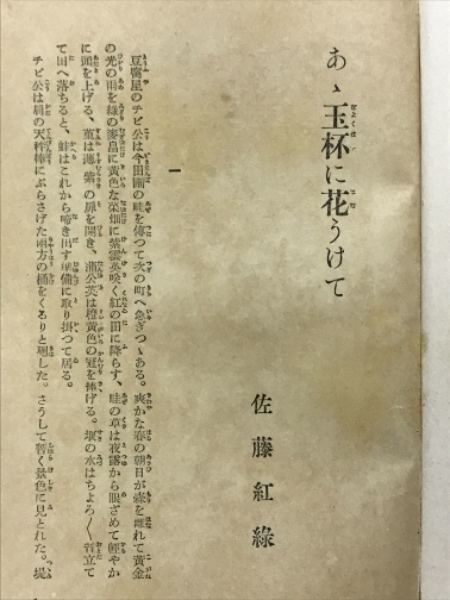 あゝ玉杯に花うけて
佐藤紅綠
一
豆腐屋のチビ公は今田圃の畦を傳つて次の町へ急ぎつゝある。爽かな春の朝日が森を離れて黄金
の光の雨を綠の麥畠に黄色な菜畑に紫雲英咲く紅の田に降らす、畦の草は夜露から眼ざめて輕やか
に頭を上げる、菫は薄紫の扉を開き、蒲公英は橙黄色の冠を捧げる。堰の水はちよろ〱音立て
て田へ落ちると、蛙はこれから啼き出す準備に取り掛つて居る。
チビ公は肩の天秤棒にぶらさげた兩方の桶をくるりと廻した。さうして暫く景色に見とれた。堤